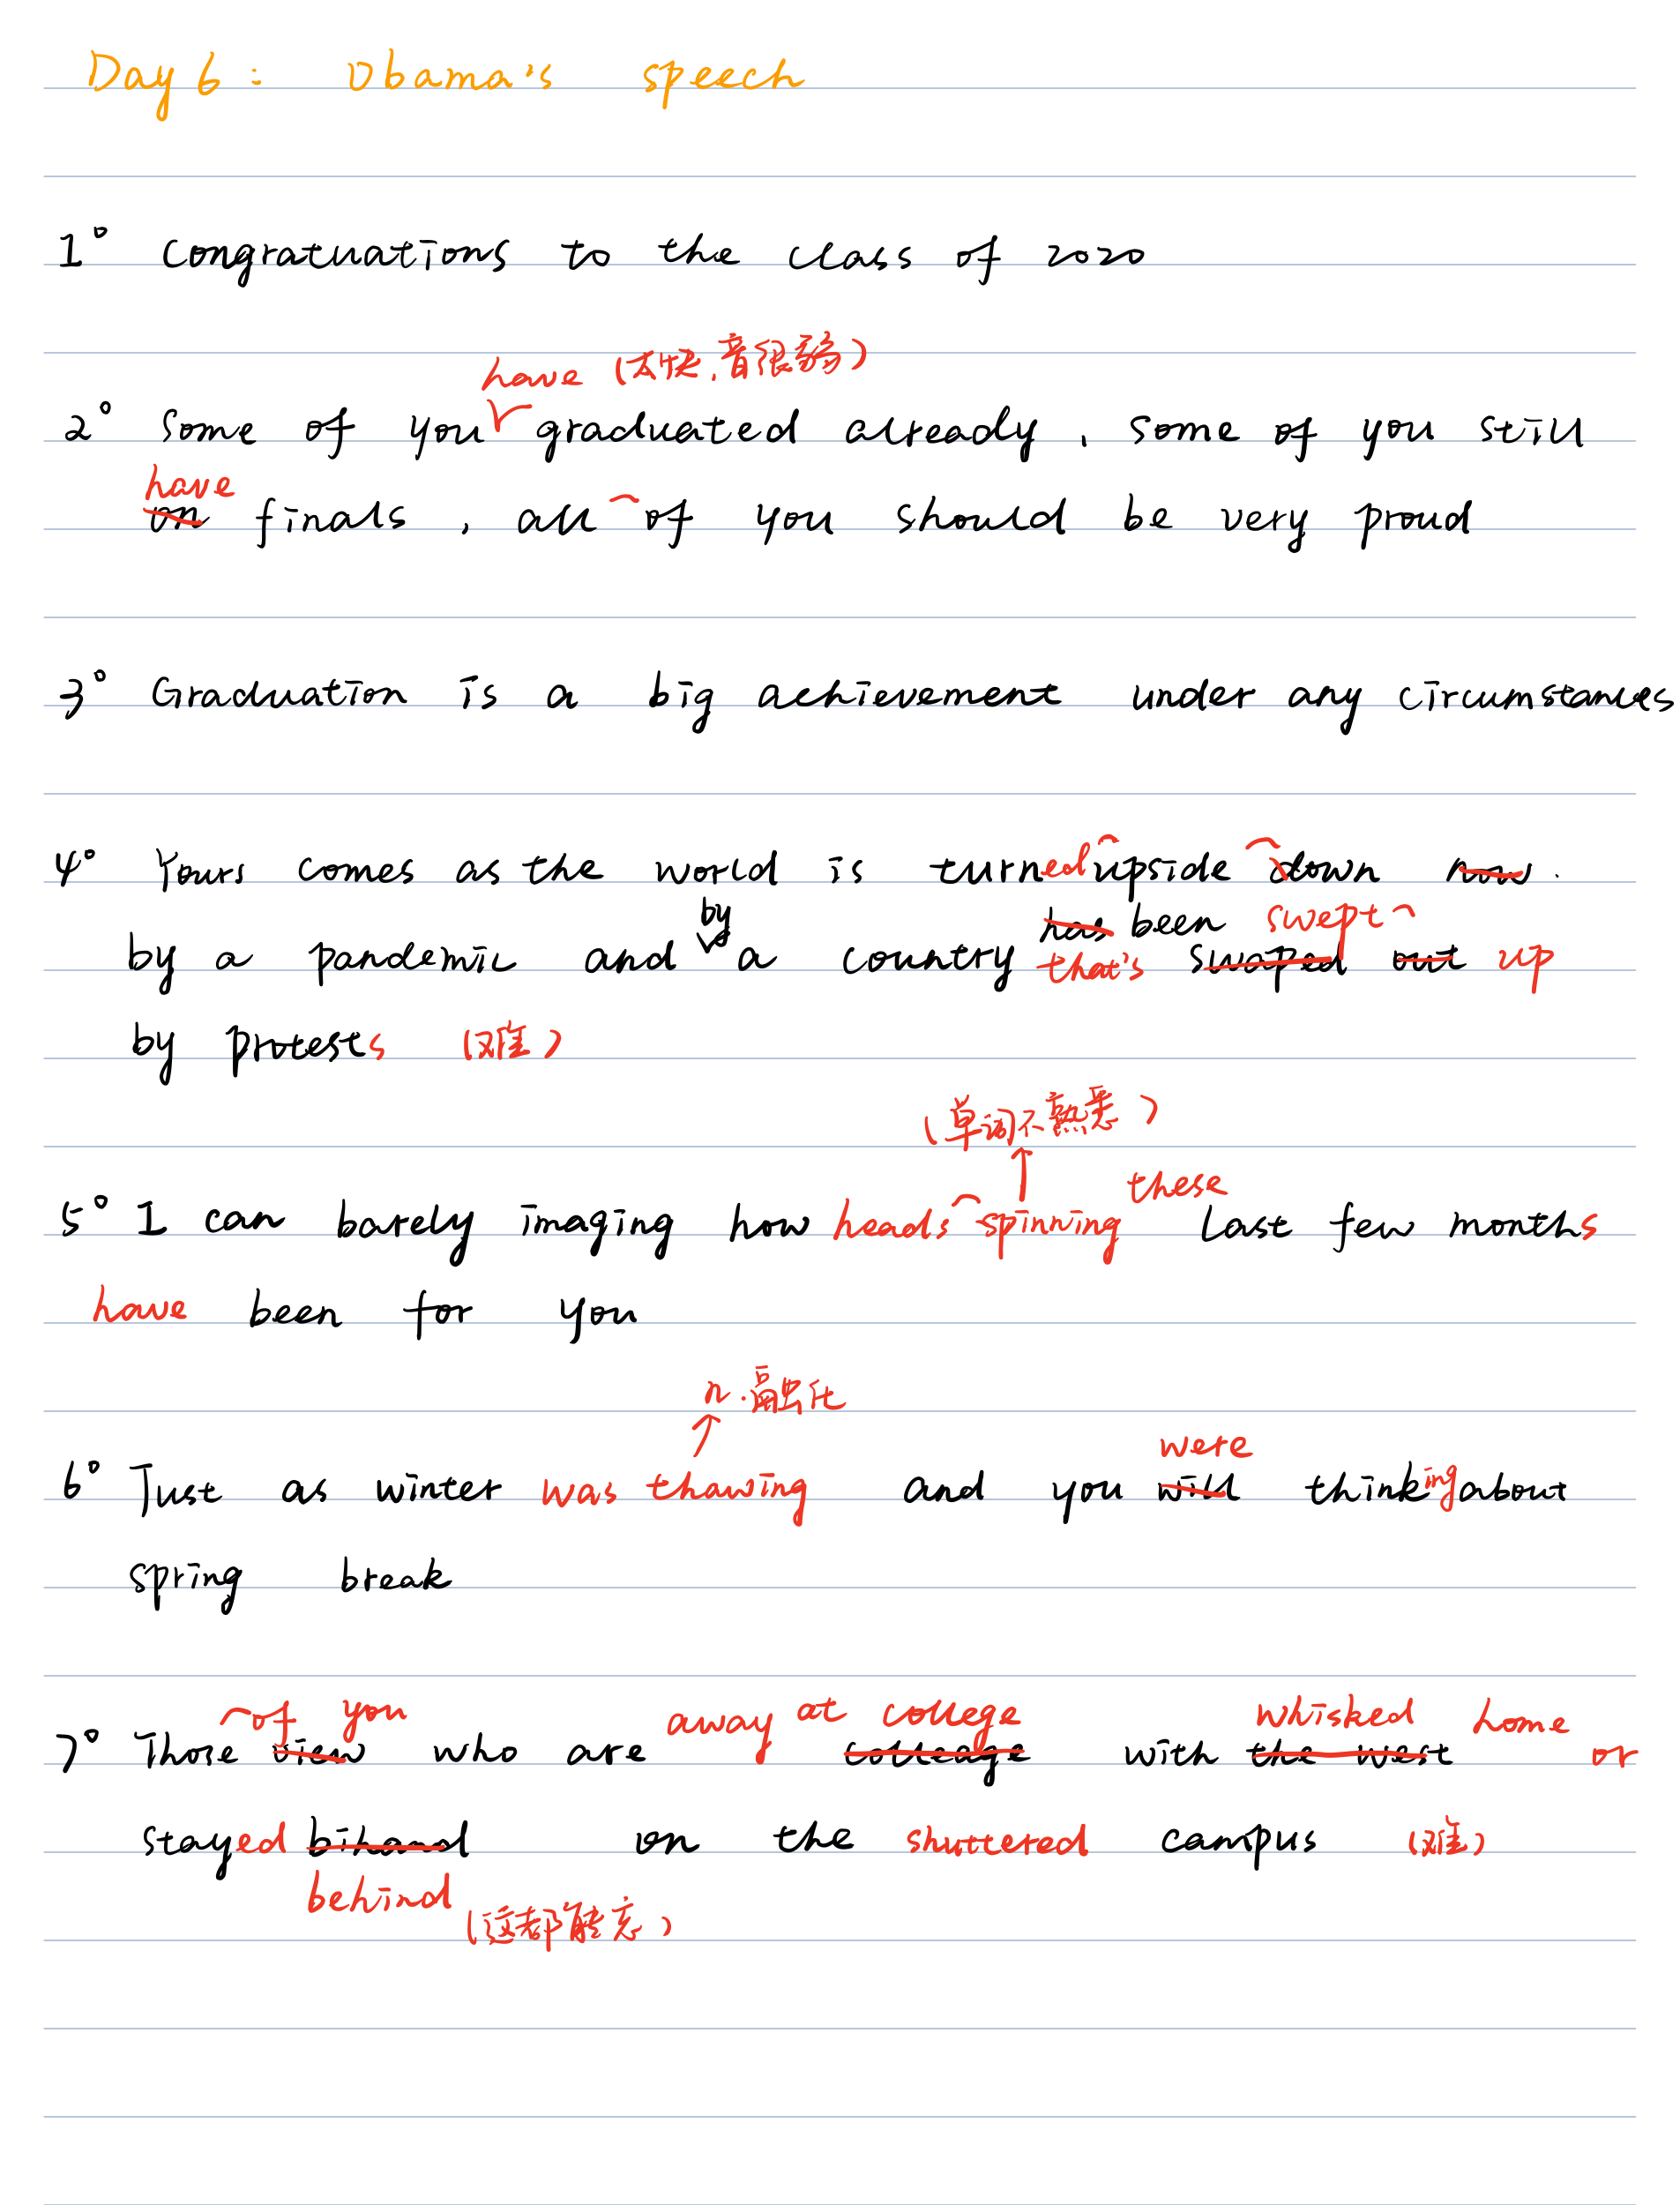 Day 6: Obama's speech
1° Congratuations to the class of 2020
have (太快,音很弱)
2° Some of you graduated already, some of you still
have
on finals, all of you should be very proud
3° Graduation is a big achievement under any circumstances
4° Yours comes as the world is turned upside down now.
by has been swept
by a pandemic and a country that's swaped out up
by protests (难)
(单词不熟悉)
these
5° I can barely imaging how heads spinning last few months
have been for you
n.融化
were
6° Just as winter was thawing and you will thinking about
spring break
of you away at college whisked home
7° Those view who are colleage with the west or
stayed bihand on the shuttered campus (难)
behind (这都能忘)